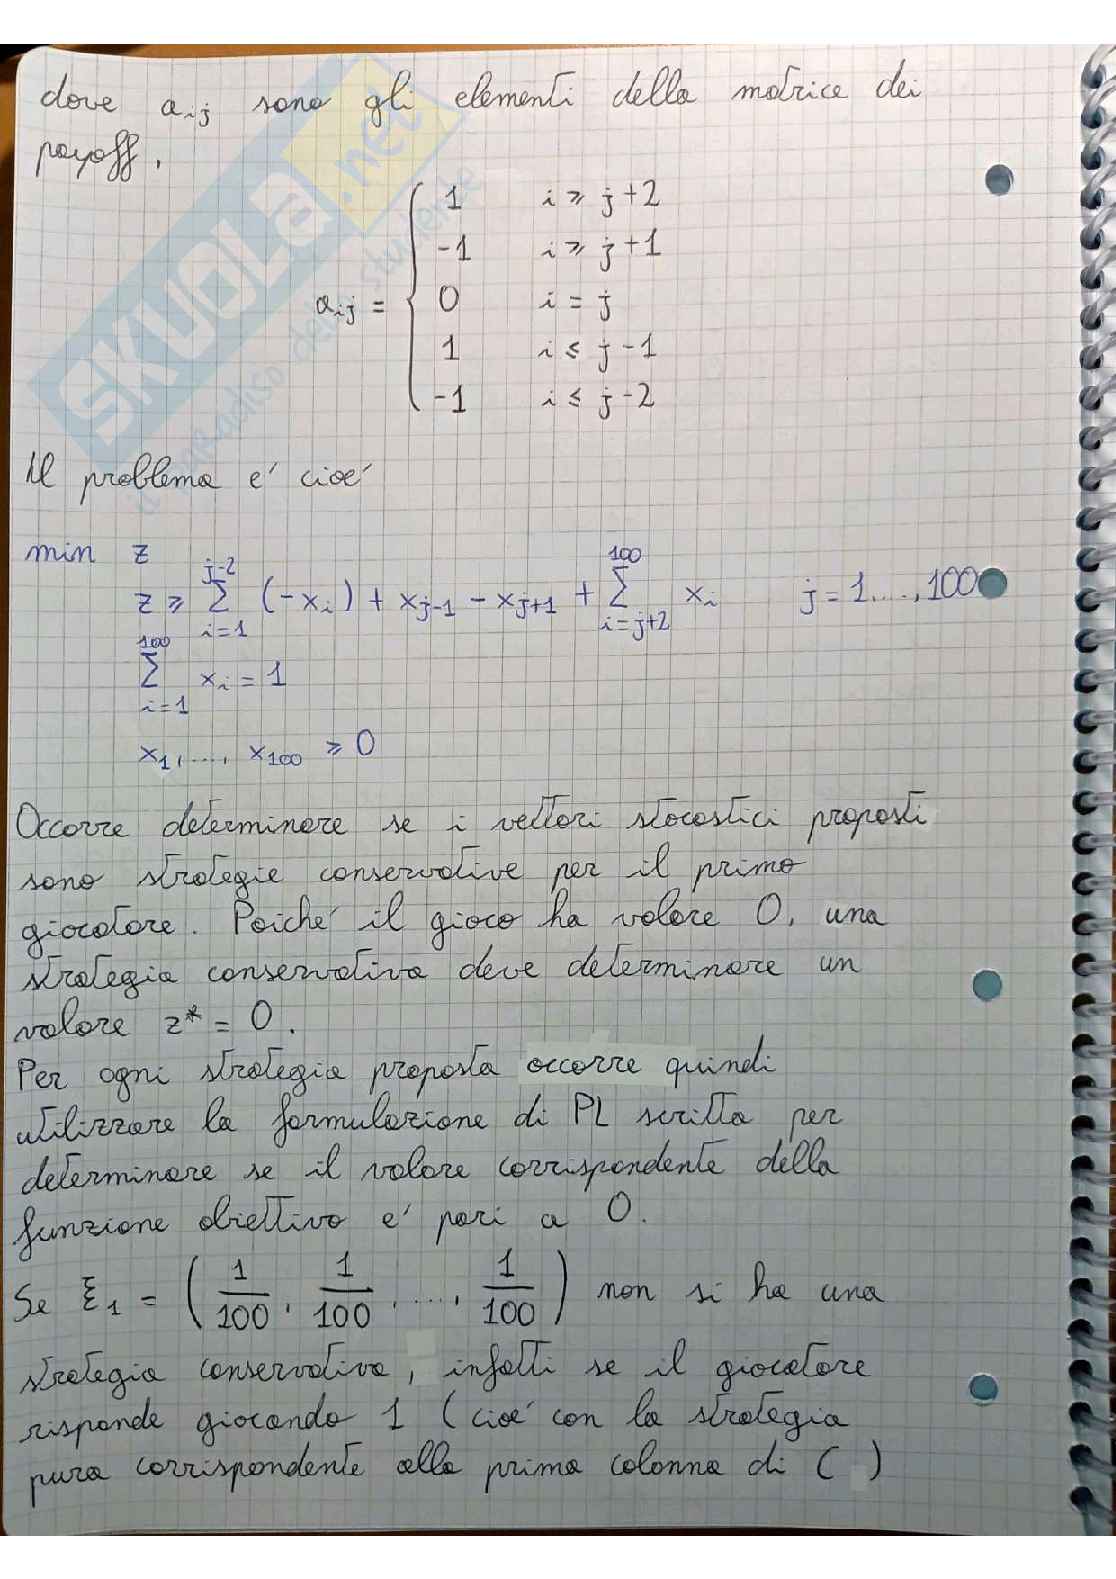 SKUOLA.net
dove a_ij sono gli elementi della matrice dei
payoff,
a_ij = { 1 i ≥ j+2
-1 i ≥ j+1
0 i = j
1 i ≤ j-1
-1 i ≤ j-2
Il problema e' cioe'
min z
z ≥ ∑_{i=1}^{j-2} (-x_i) + x_{j-1} - x_{j+1} + ∑_{i=j+2}^{100} x_i j = 1..., 100
∑_{i=1}^{100} x_i = 1
x_1, ..., x_100 ≥ 0
Occorre determinare se i vettori stocastici proposti
sono strategie conservative per il primo
giocatore. Poiche' il gioco ha valore 0, una
strategia conservativa deve determinare un
valore z* = 0.
Per ogni strategia proposta occorre quindi
utilizzare la formulazione di PL scritta per
determinare se il valore corrispondente della
funzione obiettivo e' pari a 0.
Se ξ_1 = (1/100, 1/100, ..., 1/100) non si ha una
strategia conservativa, infatti se il giocatore
risponde giocando 1 (cioe' con la strategia
pura corrispondente alla prima colonna di C )